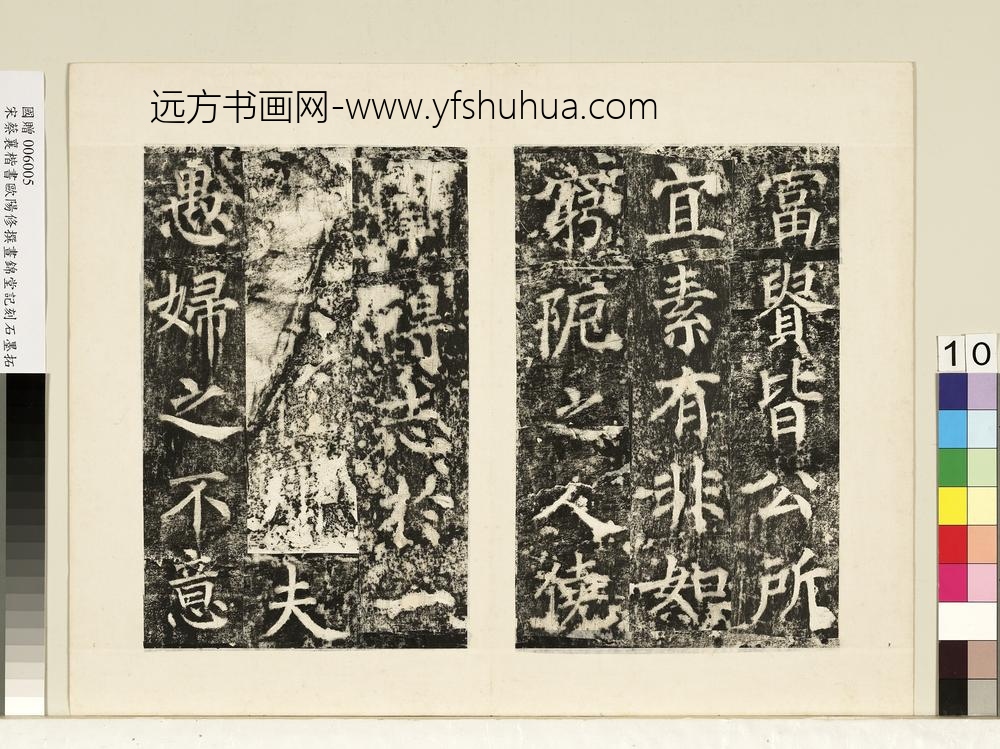 远方书画网-www.yfshuhua.com
富貴皆公所
宜素有非如
窮阨之人僥
得志於一
夫
愚婦之不意
國贈 006005
宋蔡襄楷書歐陽修撰晝錦堂記刻石墨拓
10